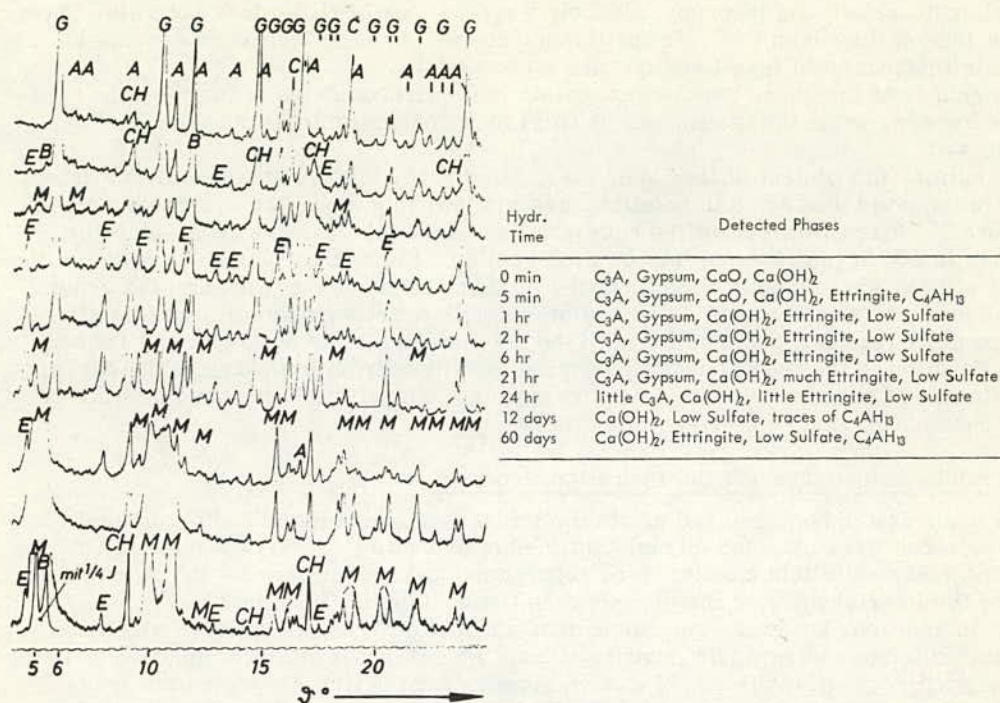 G G G G GGGG GG C G G G G G
AA A A A A A C A A A AAA
CH
CH B CH CH CH
E B E E
M M M
E E E E E M E E
E E E
M M M M M M M M
E M M M M M MM MM M MM MM
A
CH M M CH M M M M
E M B mit 1/4 J E ME CH MM E
5 10 15 20
ϑ°
Hydr. Time Detected Phases
0 min C₃A, Gypsum, CaO, Ca(OH)₂
5 min C₃A, Gypsum, CaO, Ca(OH)₂, Ettringite, C₄AH₁₃
1 hr C₃A, Gypsum, Ca(OH)₂, Ettringite, Low Sulfate
2 hr C₃A, Gypsum, Ca(OH)₂, Ettringite, Low Sulfate
6 hr C₃A, Gypsum, Ca(OH)₂, Ettringite, Low Sulfate
21 hr C₃A, Gypsum, Ca(OH)₂, much Ettringite, Low Sulfate
24 hr little C₃A, Ca(OH)₂, little Ettringite, Low Sulfate
12 days Ca(OH)₂, Low Sulfate, traces of C₄AH₁₃
60 days Ca(OH)₂, Ettringite, Low Sulfate, C₄AH₁₃